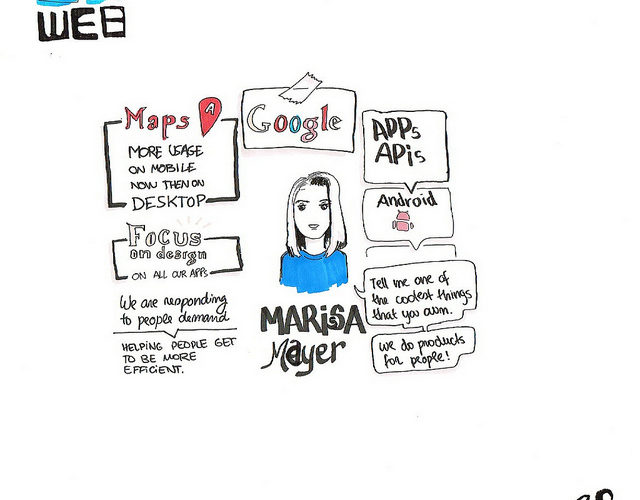 WEB
Maps A
MORE USAGE
ON MOBILE
NOW THEN ON
DESKTOP
Focus
on design
ON ALL OUR APPS
We are responding
to people demand
HELPING PEOPLE GET
TO BE MORE
EFFICIENT.
Google
MARiSSA
Mayer
APPs
APis
Android
Tell me one of
the coolest things
that you own.
we do products
for people!